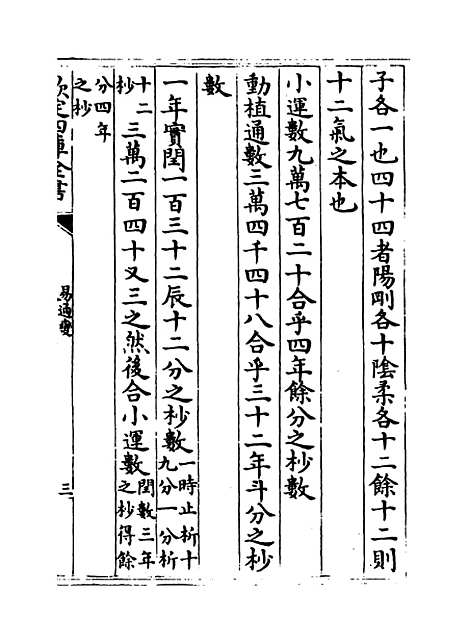 子各一也四十四者陽剛各十陰柔各十二餘十二則
十二氣之本也
小運數九萬七百二十合乎四年餘分之杪數
動植通數三萬四千四十八合乎三十二年斗分之杪
數
一年實閏一百三十二辰十二分之杪數一時止析十九分一分析
十二杪三萬二百四十又三之然後合小運數閏數三年之杪得餘
分四年之杪
欽定四庫全書
易通變
三